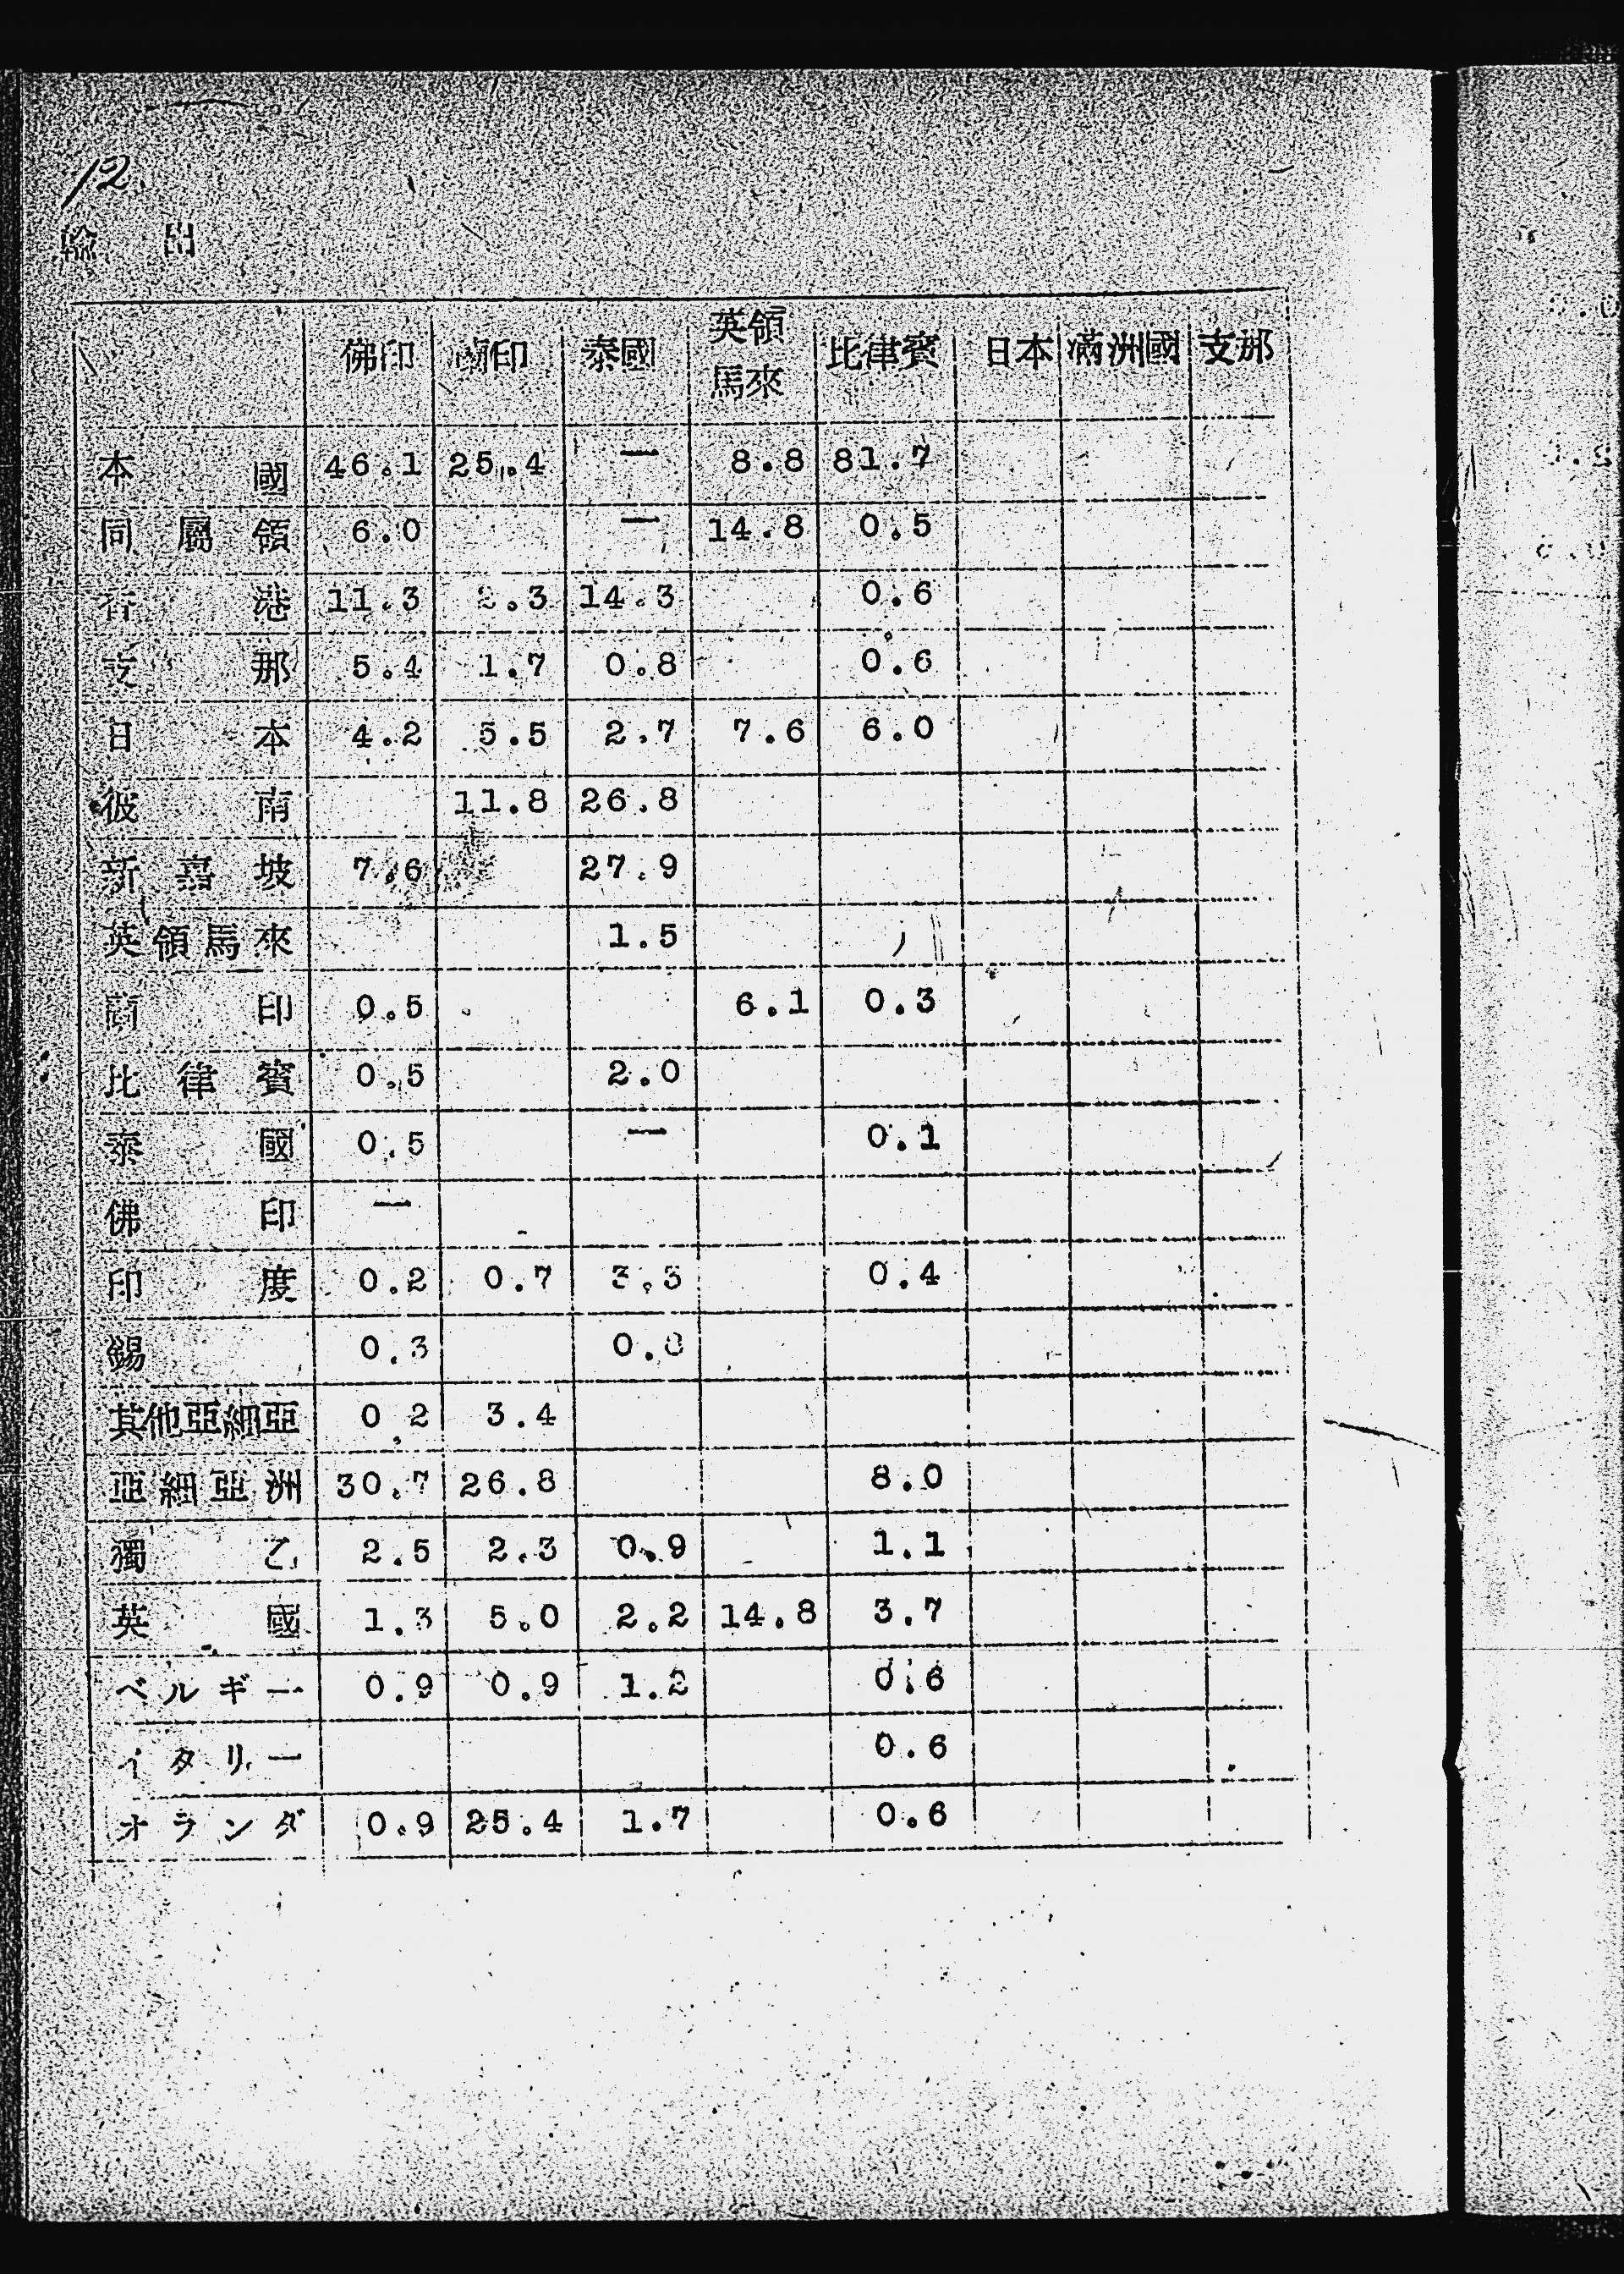 12.
輸出
佛印 蘭印 泰國 英領馬來 比律賓 日本 滿洲國 支那
本國 46.1 25.4 一 8.8 81.7
同屬領 6.0 一 14.8 0.5
香港 11.3 2.3 14.3 0.6
支那 5.4 1.7 0.8 0.6
日本 4.2 5.5 2.7 7.6 6.0
彼南 11.8 26.8
新嘉坡 7.6 27.9
英領馬來 1.5
蘭印 0.5 6.1 0.3
比律賓 0.5 2.0
泰國 0.5 一 0.1
佛印 一
印度 0.2 0.7 3.3 0.4
錫 0.3
其他亞細亞 0.2 3.4
亞細亞洲 30.7 26.8 8.0
獨乙 2.5 2.3 0.9 1.1
英國 1.3 5.0 2.2 14.8 3.7
ベルギー 0.9 0.9 1.2 0.6
イタリー 0.6
オランダ 0.9 25.4 1.7 0.6